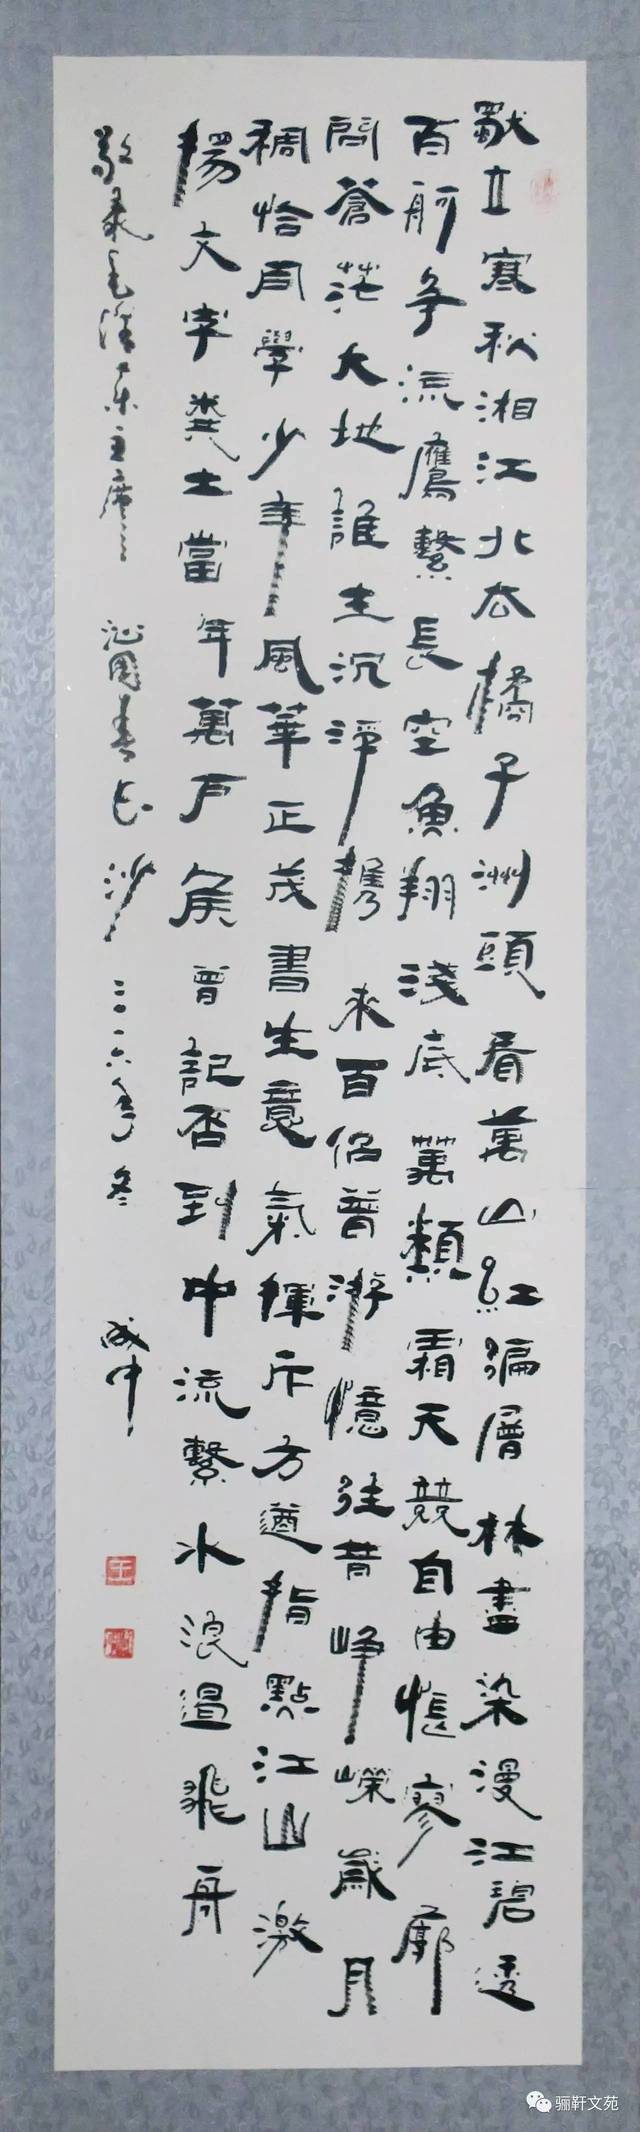 獨立寒秋湘江北去橘子洲頭看萬山紅遍層林盡染漫江碧透
百舸争流鷹擊長空魚翔淺底萬類霜天競自由悵寥廓
問蒼茫大地誰主沉浮攜來百侣曾游憶往昔崢嶸歲月
稠恰同學少年風華正茂書生意氣揮斥方遒指點江山激
揚文字糞土當年萬户侯曾記否到中流擊水浪遏飛舟
敬录毛澤东主席 沁園春长沙 二〇一六年冬 成中
骊靬文苑